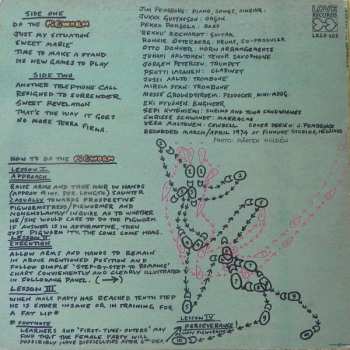 SIDE ONE
DO THE PIGWORM
JUST MY SITUATION
SWEET MARIE
TIME TO MAKE A STAND
NO NEW GAMES TO PLAY
SIDE TWO
ANOTHER TELEPHONE CALL
RESIGNED TO SURRENDER
SWEET REVELATION
THAT'S THE WAY IT GOES
NO MORE TERRA FIRMA
JIM PEMBROKE: PIANO, SONGS, SINGING.
JUKKA GUSTAVSON: ORGAN
PEKKA POHJOLA: BASS
"REKKU" RECHARDT: GUITAR
RONNIE ÖSTERBERG: DRUMS, CO-PRODUCER
OTTO DONNER: HORN ARRANGEMENTS
JUHANI AALTONEN: TENOR SAXOPHONE
JORGEN PETERSEN: TRUMPET
PENTTI LASANEN: CLARINET
JUSSI AALTO: TROMBONE
MIRCEA STAN: TROMBONE
MOSSE GROUNDSTROEM: PRODUCER, MINI-MOOG.
ERI PYYÖNEN: ENGINEER
SEPI KYTÖNIEMI: SHRIMP AND TUNA SANDWICHES
CHRISSE SCHWINDT: MARACAS
VERA AALTONEN: COWBELL COVER DESIGN: J. PEMBROKE
RECORDED MARCH/APRIL 1974 AT FINNVOX STUDIOS, HELSINKI
PHOTO: MÅRTEN HOLDÉN
LOVE
RECORDS
LRLP 103
HOW TO DO THE PIGWORM
LESSON I
APPROACH
RAISE ARMS AND TROUSER IN HANDS
(APPROX. 8 INS. DEP. LENGTH) SAUNTER
CASUALLY TOWARDS PROSPECTIVE
PIGWORMTRESS/PIGWORMER AND
NONCHALANTLY INQUIRE AS TO WHETHER
HE/SHE WOULD CARE TO DO THE PIGWORM.
IF ANSWER IS IN AFFIRMATIVE, THEN
JUST PIGWORM 'TIL THE COWS COME HOME.
LESSON II
EXECUTION
ALLOW ARMS AND HANDS TO REMAIN
IN ABOVE MENTIONED POSITION AND
FOLLOW SIMPLE 'STEP-BY-STEP TO ROMANCE'
CHART CONVENIENTLY AND CLEARLY ILLUSTRATED
IN FOLLOWING PANEL. (→)
LESSON III
WHEN MALE PARTY HAS REACHED TENTH STEP
HE IS EITHER INSANE OR IN TRAINING FOR
A FAT LIP*
* FOOTNOTE
LEARNERS AND 'FIRST-TIME-OUTERS' MAY
FIND THAT THE FEMALE PARTY WILL
POSSIBLY HAVE DIFFICULTIES AFTER 6TH STEP
LESSON IV
PERSEVERANCE